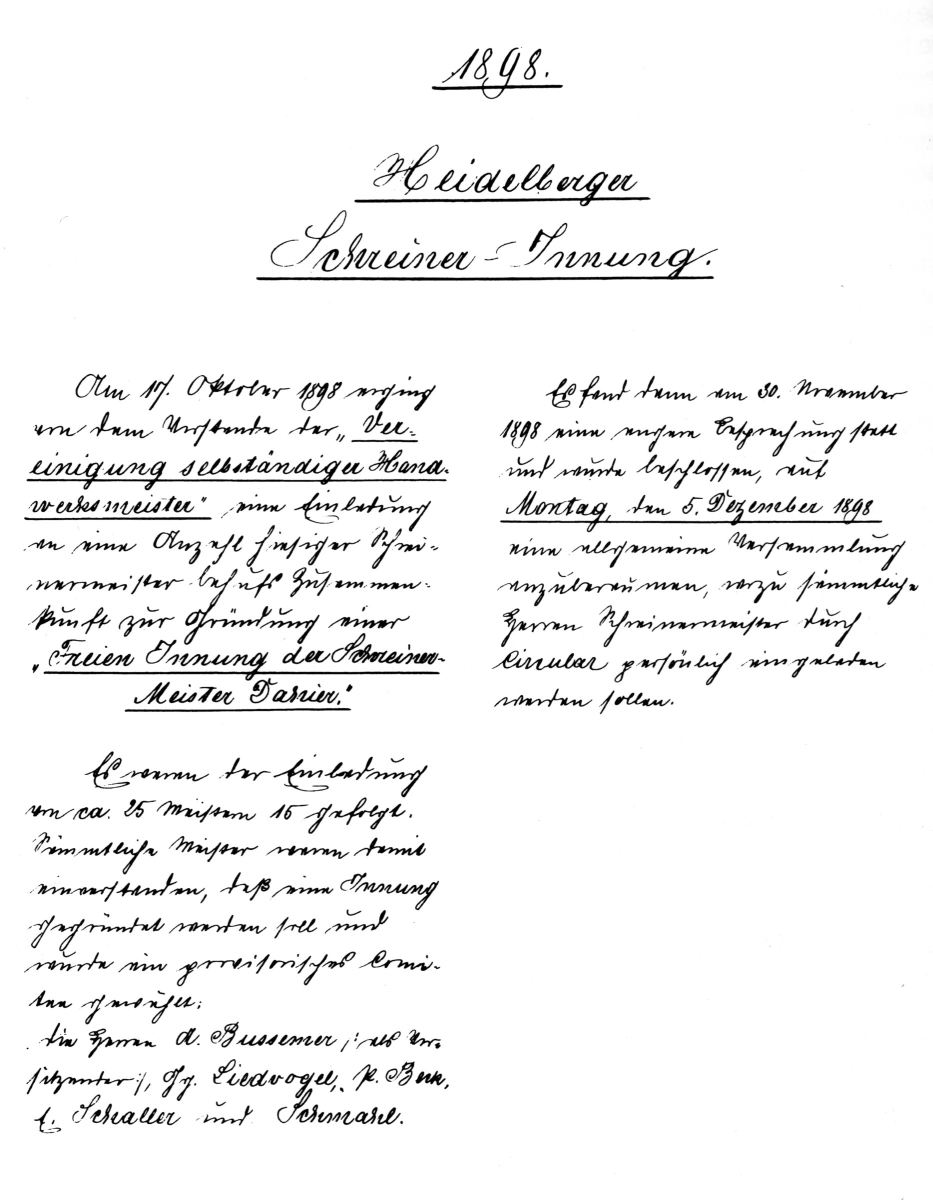 1898.
Heidelberger
Schreiner-Innung.
Am 17. Oktober 1898 erging
von dem Vorstande der „Ver-
einigung selbständiger Hand-
werksmeister" eine Einladung
an eine Anzahl hiesiger Schrei-
nermeister behufs Zusammen-
kunft zur Gründung einer
„Freien Innung der Schreiner-
Meister Dahier."
Es waren der Einladung
von ca. 25 Meistern 15 gefolgt.
Sämmtliche Meister waren damit
einverstanden, daß eine Innung
gegründet werden soll und
wurde ein provisorisches Comi-
tee gewählt:
die Herren A. Bussemer /: als Vor-
sitzender :/, Gg. Liedvogel, P. Beck,
E. Schaller und Schmahl.
Es fand dann am 30. November
1898 eine engere Besprechung statt
und wurde beschlossen, auf
Montag, den 5. Dezember 1898
eine allgemeine Versammlung
anzuberaumen, wozu sämmtliche
Herren Schreinermeister durch
Circular persönlich eingeladen
werden sollen.